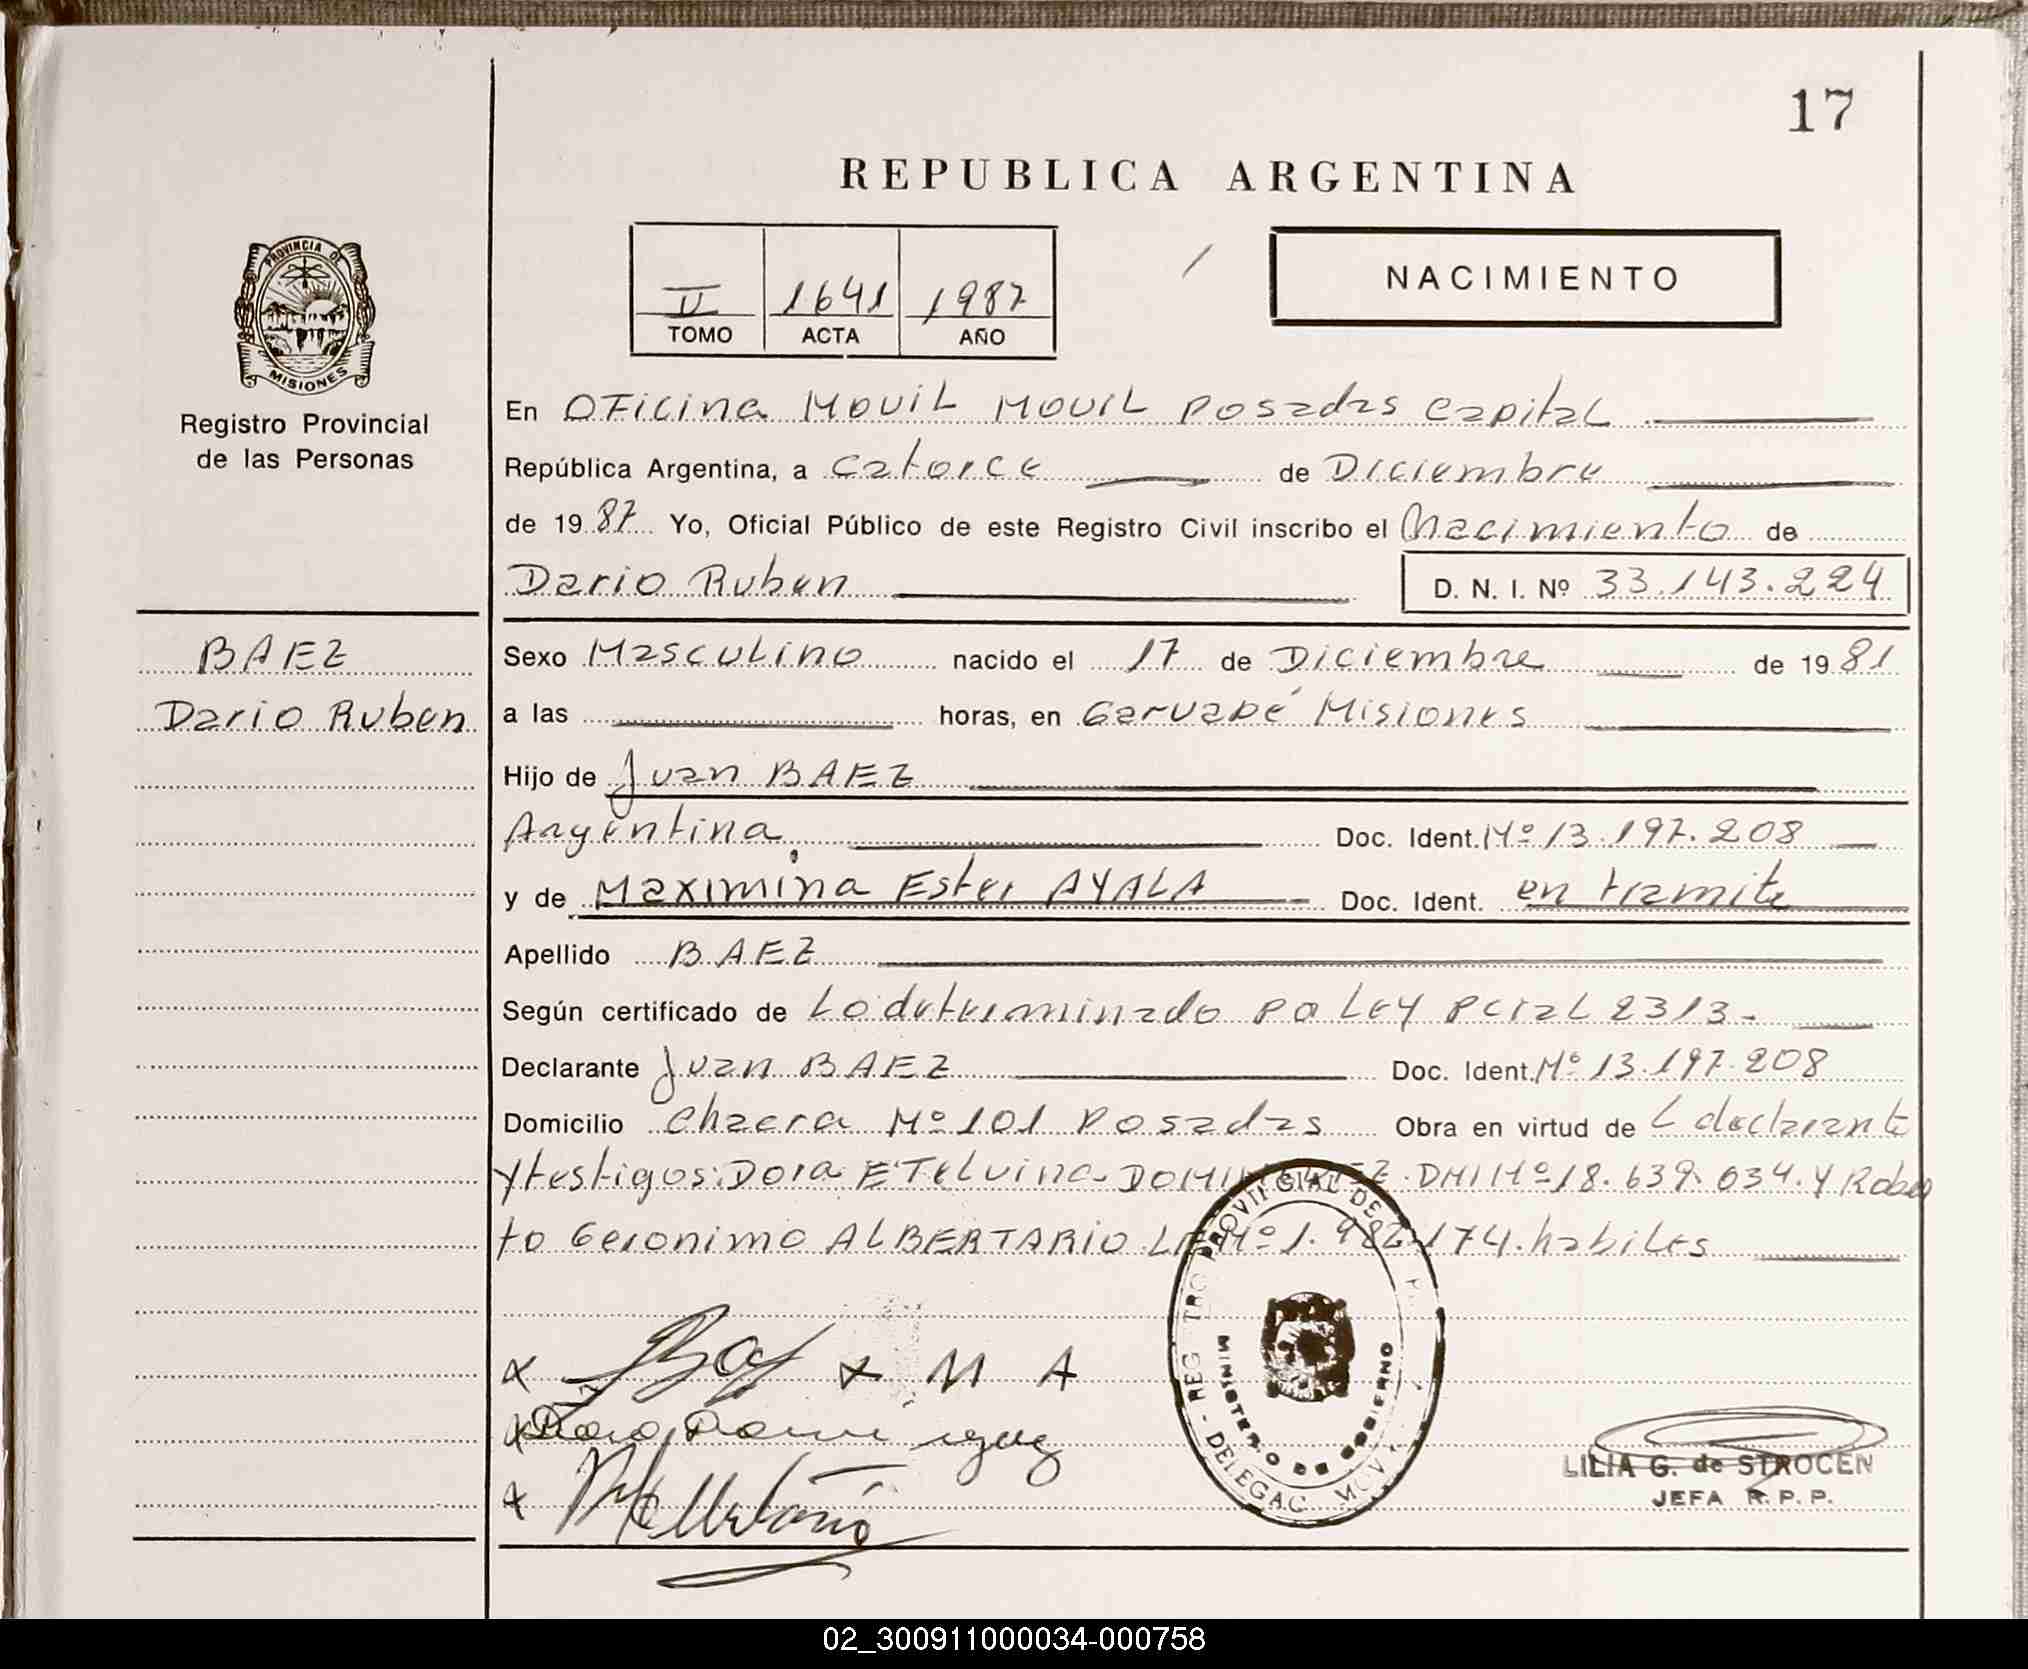 17
REPUBLICA ARGENTINA
PROVINCIA DE
MISIONES
Registro Provincial
de las Personas
II 1641 1987
TOMO ACTA AÑO
NACIMIENTO
En OFicina MOVIL MOVIL Posadas Capital
República Argentina, a catorce de Diciembre
de 1987 Yo, Oficial Público de este Registro Civil inscribo el Nacimiento de
Dario Ruben D. N. I. Nº 33.143.224
BAEZ
Dario Ruben
Sexo Masculino nacido el 17 de Diciembre de 1981
a las horas, en Garuapé Misiones
Hijo de Juan BAEZ
Argentina Doc. Ident. Nº 13.197.208
y de Maximina Ester AYALA Doc. Ident. en tramite
Apellido BAEZ
Según certificado de Lo determinado po Ley Pcial 2313.
Declarante Juan BAEZ Doc. Ident. Nº 13.197.208
Domicilio Chacra Nº 101 Posadas Obra en virtud de L declarante
y testigos: Dora ETelvina DOMINGUEZ. DNI Nº 18.639.034. y Rober
to Geronimo ALBERTARIO LE Nº 1.982.174. habiles
x x M A
x Dora Dominguez
x
REGISTRO PROVINCIAL DE
MINISTERIO DE GOBIERNO
LILIA G. de STROCEN
JEFA R. P. P.
02_300911000034-000758